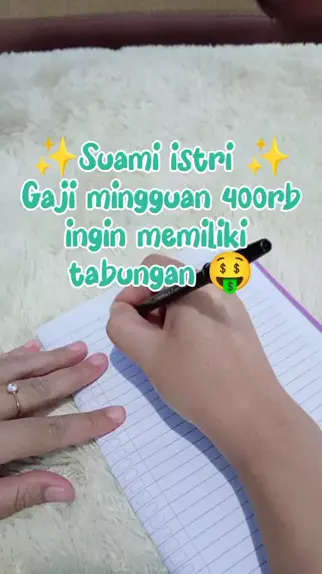 ✨Suami istri ✨
Gaji mingguan 400rb
ingin memiliki
tabungan 🤑